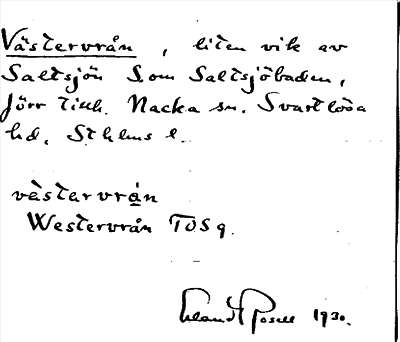 Västervrån, liten vik av
Saltsjön S.om Saltsjöbaden,
förr tillh. Nacka sn. Svartlösa
hd, Sthlms l.
vèstərvrán
Westervrån TOS9.
Erland Rosell 1930.